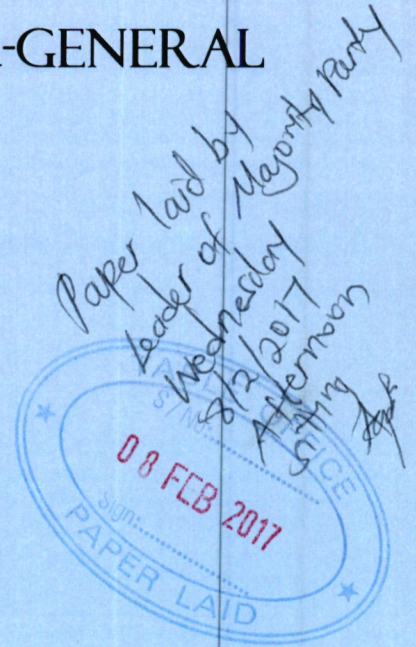 -GENERAL
Paper laid by
Leader of Majority Party
Wednesday
8/2/2017
Afternoon
Sitting
OFFICE
S/No:
08 FEB 2017
Sign:
PAPER LAID